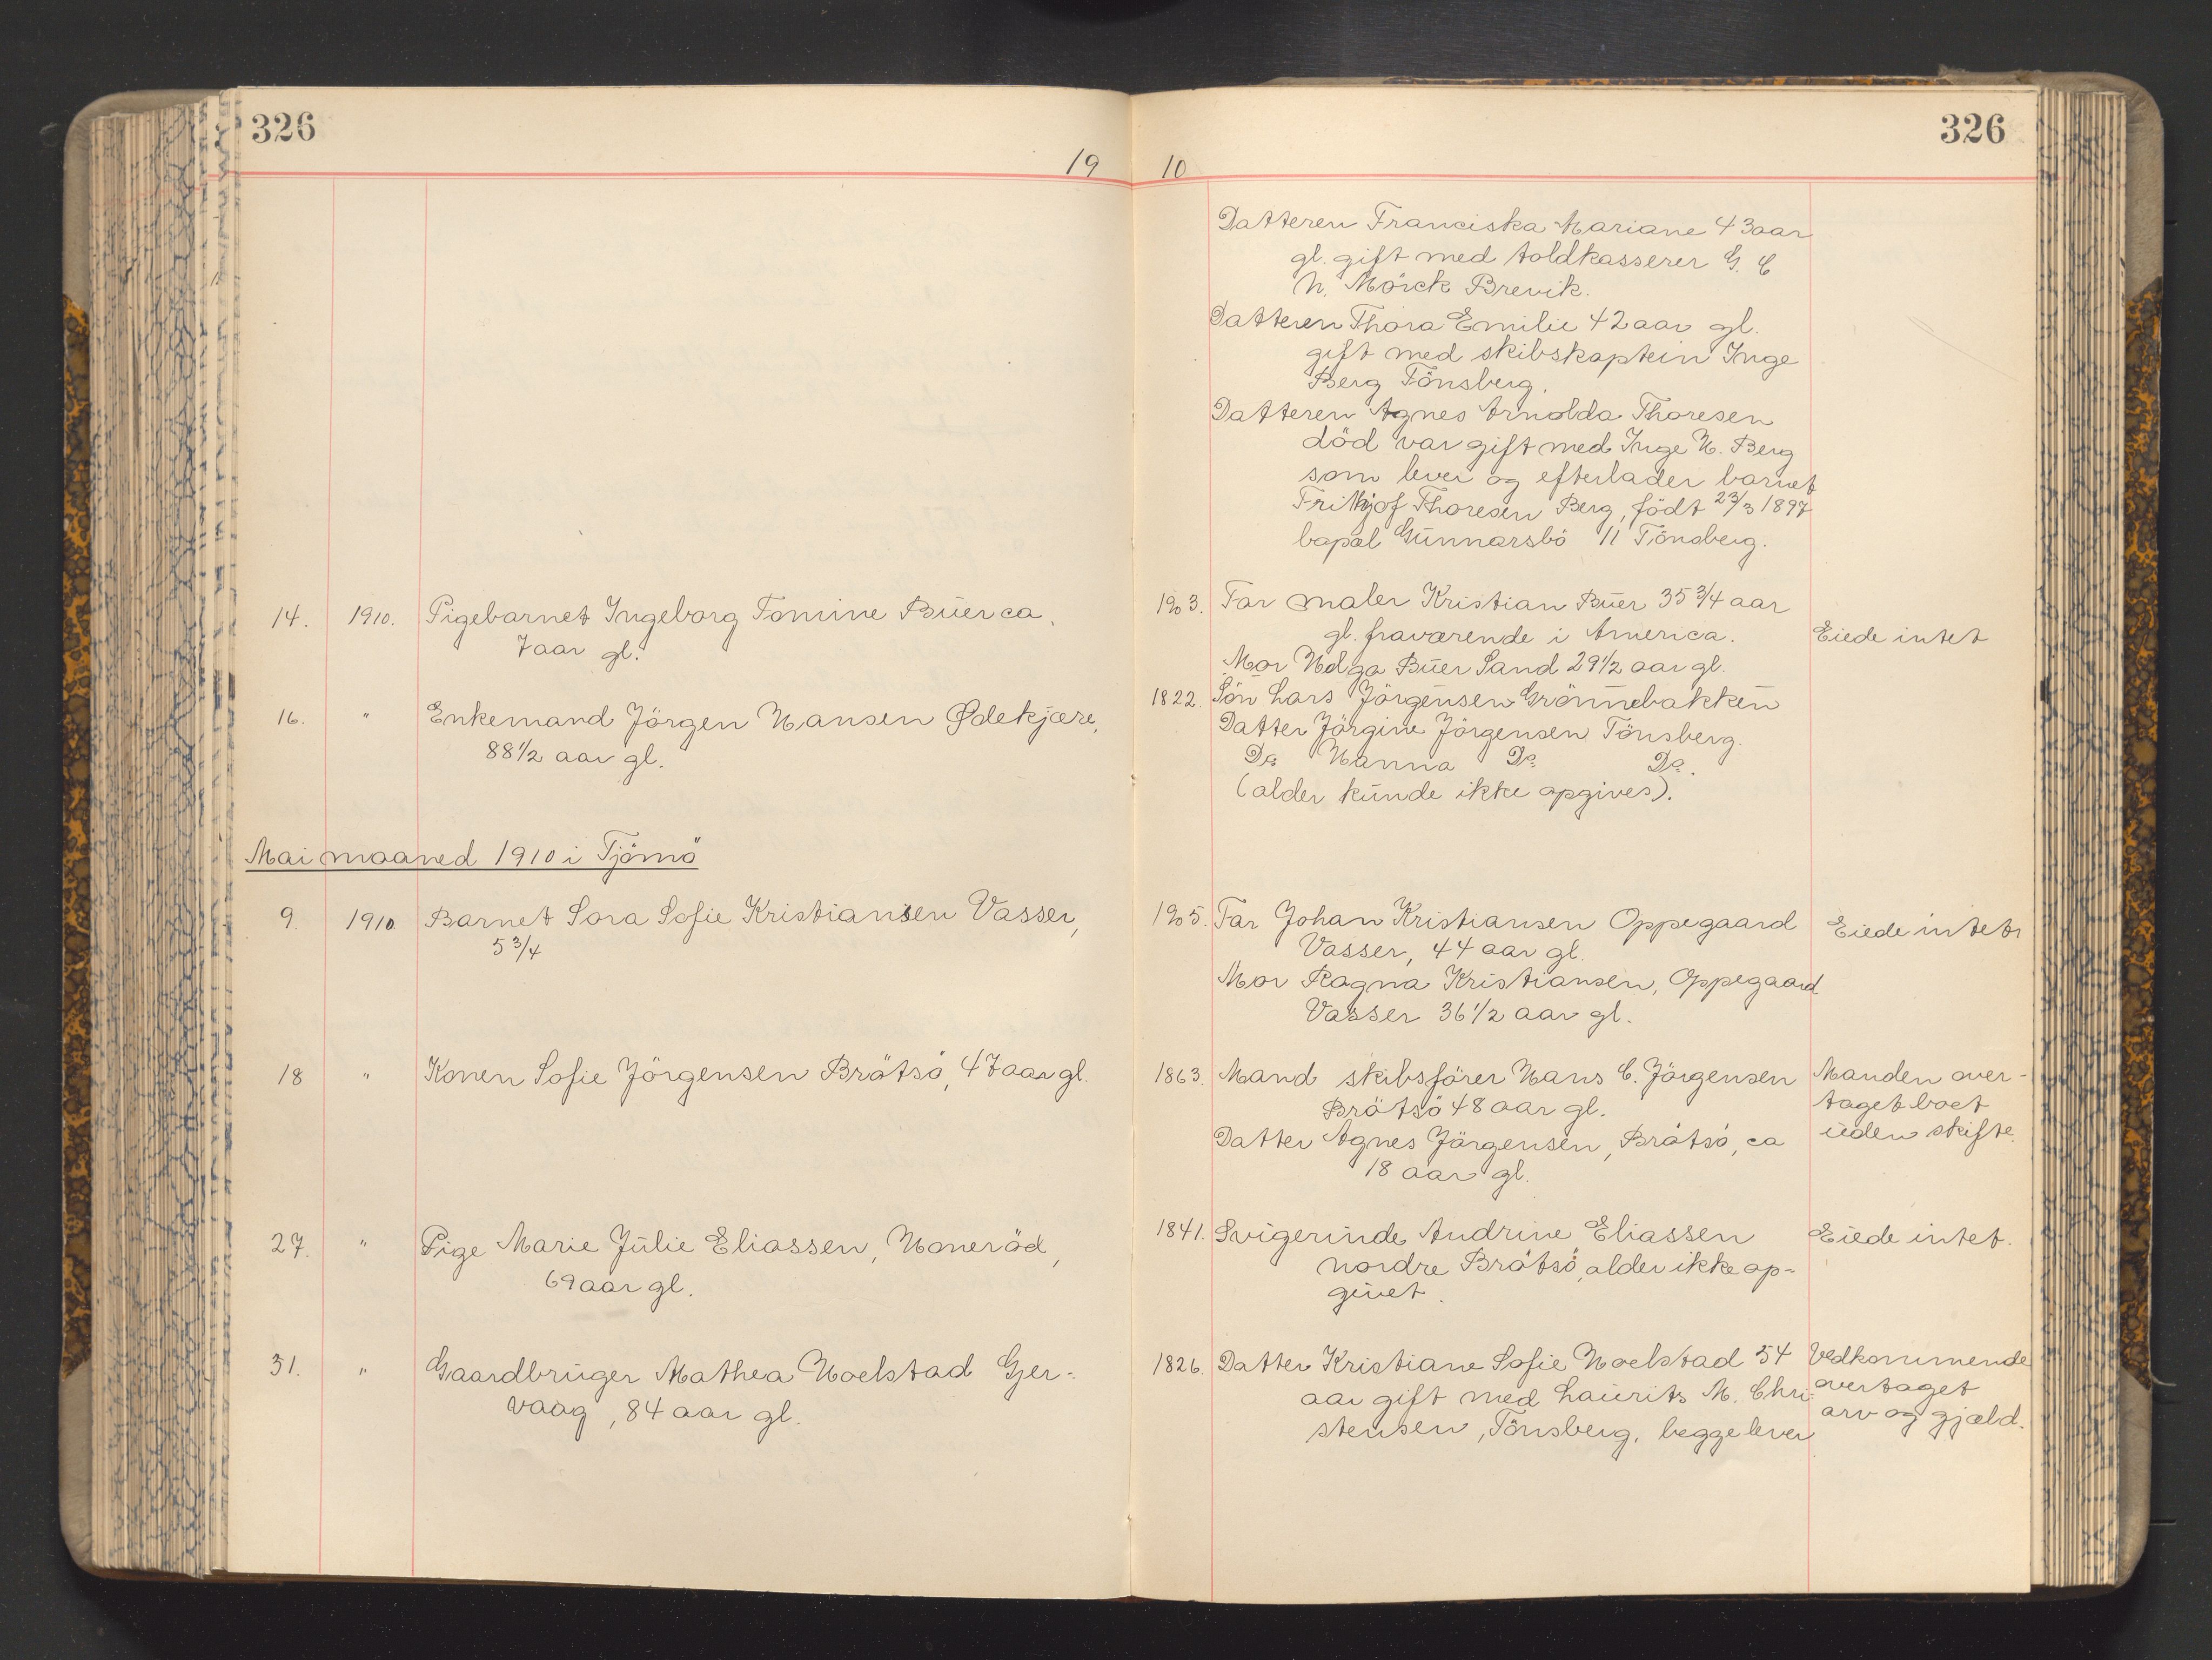 326
326
19 10
Datteren Franciska Mariane 43 aar
gl. gift med toldkasserer G. C
N. Mörck Brevik.
Datteren Thora Emilie 42 aar gl.
gift med skibskaptein Inge
Berg Tönsberg.
Datteren Agnes Arnolda Thoresen
död var gift med Inge H. Berg
som lever og efterlader barnet
Frithjof Thoresen Berg, född 23/3 1897
bopæl Gunnarsbö 11 Tönsberg.
14. 1910. Pigebarnet Ingeborg Tomine Buer ca.
7 aar gl.
1903. Far maler Kristian Buer 35 3/4 aar
gl. fraværende i America.
Mor Helga Buer Sand 29 1/2 aar gl.
Eiede intet
16. " Enkemand Jörgen Hansen Ødekjære,
88 1/2 aar gl.
1822. Sön Lars Jörgensen Grönnebakken
Datter Jörgine Jörgensen Tönsberg.
Do Hanna Do Do.
(alder kunde ikke opgives).
Mai maaned 1910 i Tjömö
9. 1910. Barnet Sara Sofie Kristiansen Vasser,
5 3/4
1905. Far Johan Kristiansen Oppegaard
Vasser, 44 aar gl.
Mor Ragna Kristiansen, Oppegaard
Vasser 36 1/2 aar gl.
Eiede intet
18 " Konen Sofie Jörgensen Brötsö, 47 aar gl.
1863. Mand skibsförer Hans C. Jörgensen
Brötsö 48 aar gl.
Datter Agnes Jörgensen, Brötsö, ca
18 aar gl.
Manden over-
taget boet
uden skifte.
27. " Pige Marie Julie Eliassen, Honeröd,
69 aar gl.
1841. Svigerinde Andrine Eliassen
nordre Brötsö, alder ikke op-
givet.
Eiede intet.
31. " Gaardbruger Mathea Hoelstad Gjer-
vaag, 84 aar gl.
1826. Datter Kristiane Sofie Hoelstad 54
aar gift med Laurits M. Chri-
stensen, Tönsberg, begge lever
Vedkommende
overtaget
arv og gjæld.